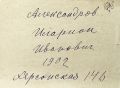 Александров
Иларион
Иванович
1992
Херсонская 146